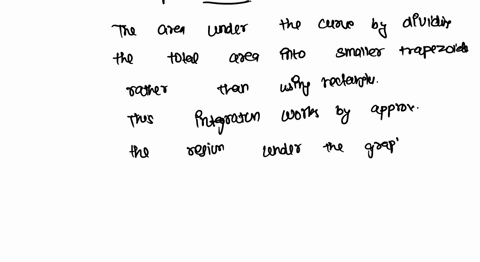 The area under the curve by dividing
the total area into smaller trapezoids
rather than using rectangles.
This integration works by approx.
the region under the grap